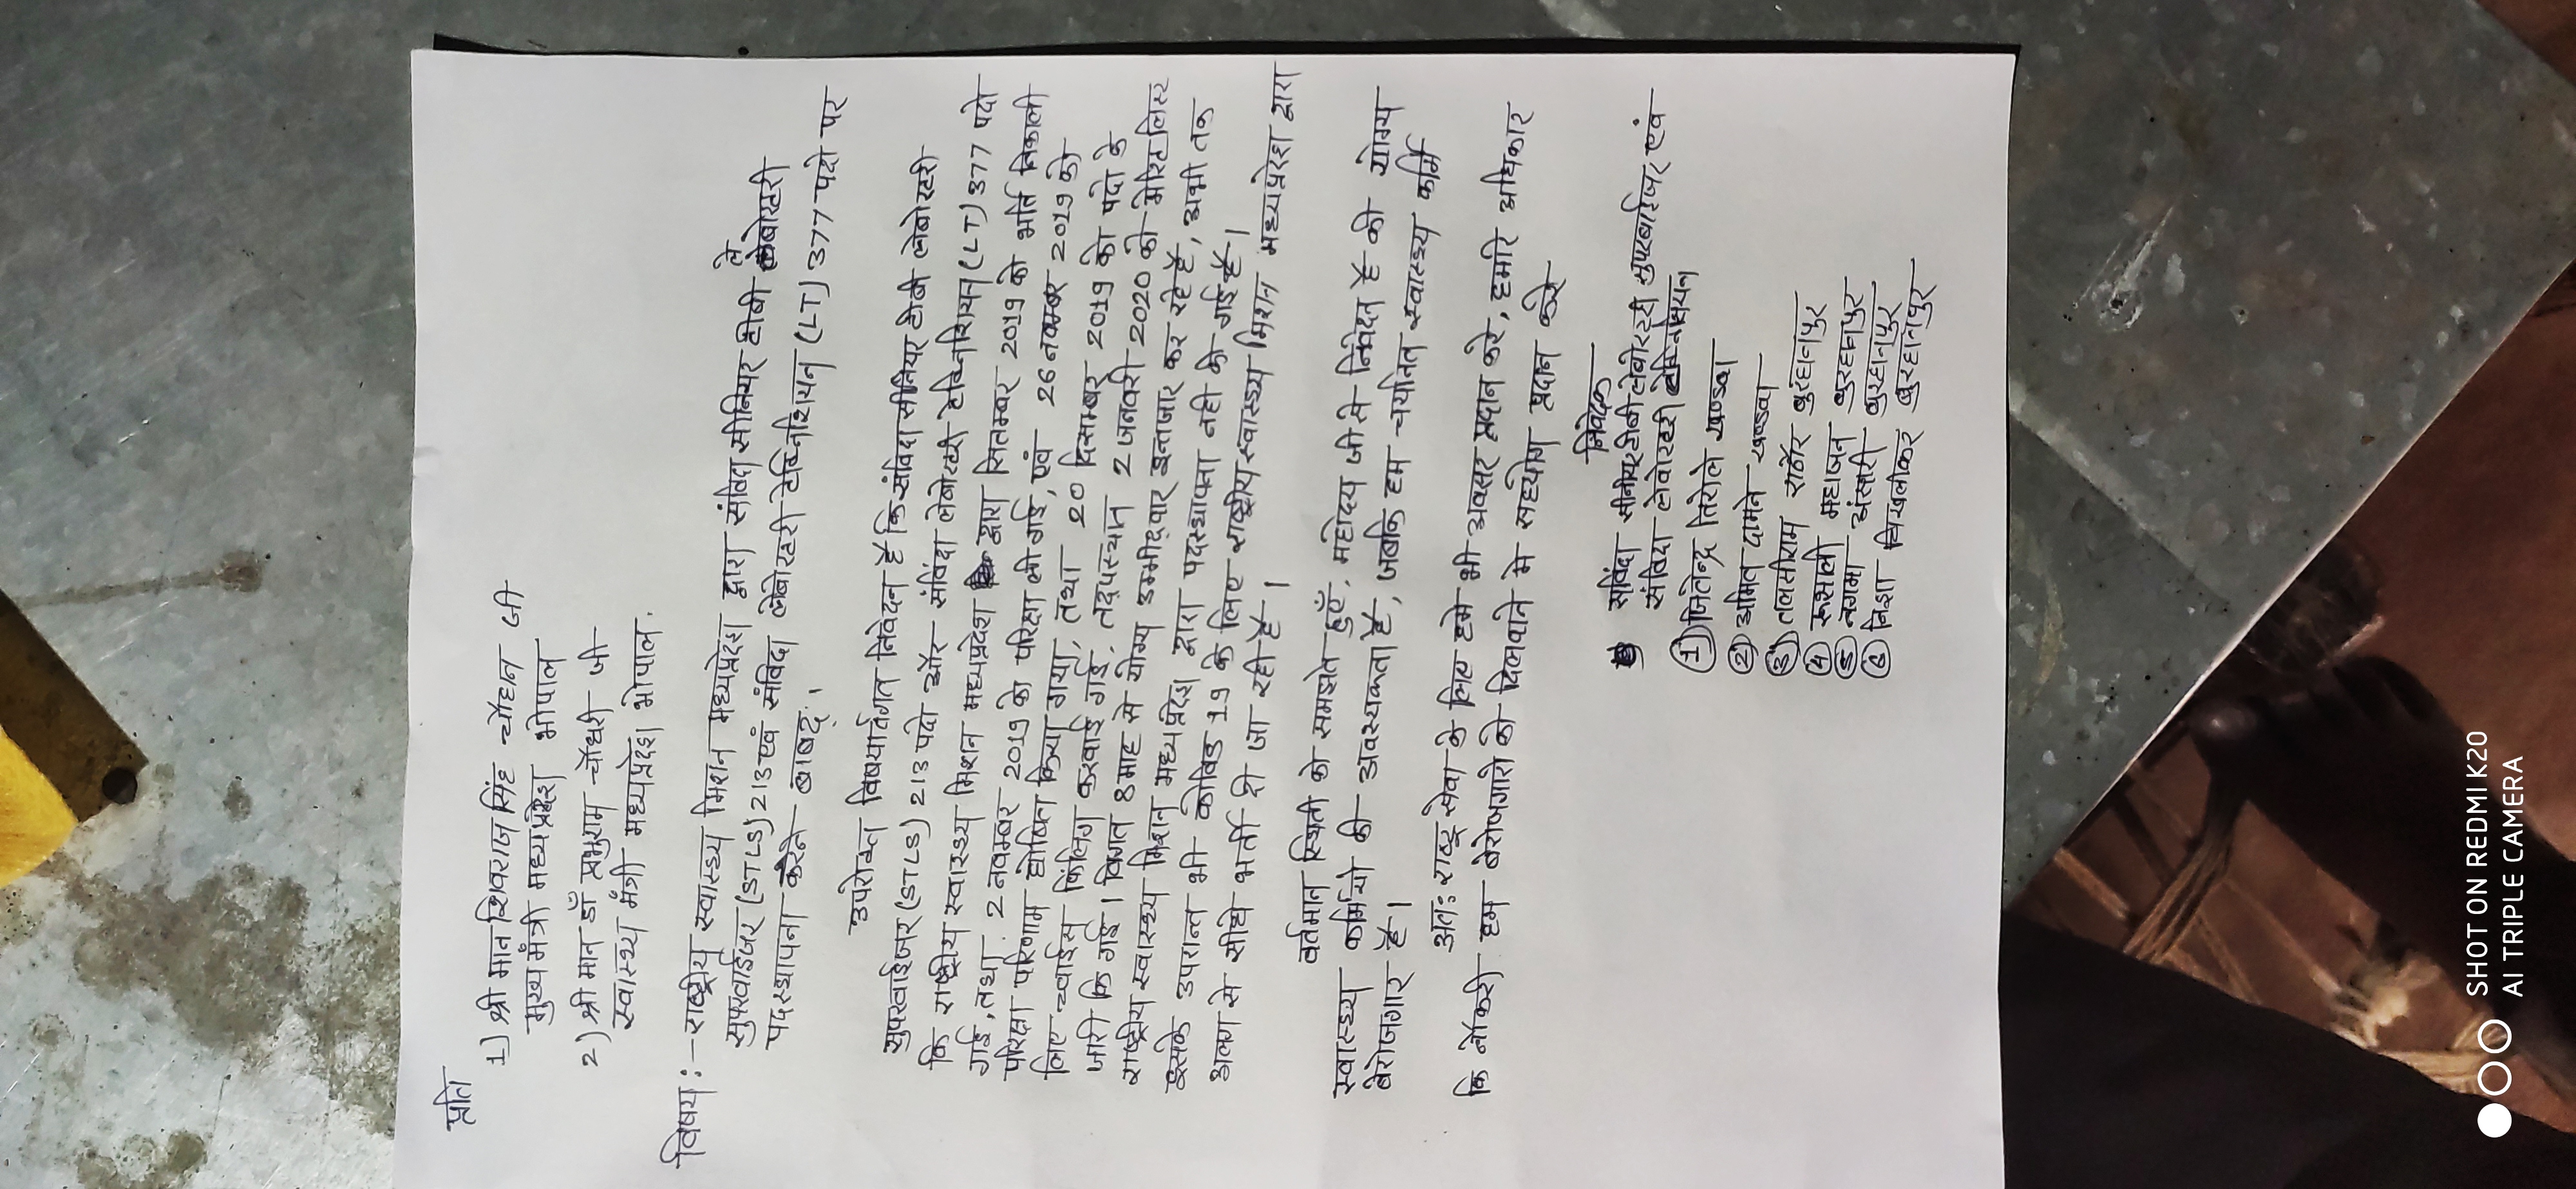 प्रति
1) श्री मान शिवराज सिंह चौहान जी
मुख्य मंत्री मध्यप्रदेश भोपाल
2) श्री मान डॉ प्रभुराम चौधरी जी
स्वास्थ्य मंत्री मध्यप्रदेश भोपाल.
विषय:- राष्ट्रीय स्वास्थ्य मिशन मध्यप्रदेश द्वारा संविदा सीनियर टीबी लेबोरटरी
सुपरवाईजर (STLS) 213 एवं संविदा लेबोरटरी टेक्निशियन (LT) 377 पदो पर
पदस्थापना करने बाबद्।
उपरोक्त विषयांर्गत निवेदन हैं कि संविदा सीनियर टीबी लेबोरटरी
सुपरवाईजर (STLS) 213 पदो और संविदा लेबोरटरी टेक्निशियन (LT) 377 पदो
कि राष्ट्रीय स्वास्थ्य मिशन मध्यप्रदेश द्वारा सितम्बर 2019 को भर्ति निकाली
गई, तथा 2 नवम्बर 2019 को परिक्षा ली गई, एवं 26 नवम्बर 2019 को
परिक्षा परिणाम घोषित किया गया, तथा 20 दिसम्बर 2019 को पदो के
लिए च्वाईस फिलिंग करवाई गई, तद्पस्चात 2 जनवरी 2020 को मेरिट लिस्ट
जारी कि गई। विगत 8 माह से योग्य उम्मीद्वार इन्तजार कर रहे हैं, अभी तक
राष्ट्रीय स्वास्थ्य मिशन मध्यप्रदेश द्वारा पदस्थापना नही की गई हैं।
इसके उपरान्त भी कोविड 19 के लिए राष्ट्रीय स्वास्थ्य मिशन मध्यप्रदेश द्वारा
अलग से सीधे भर्ती दी जा रही हैं।
वर्तमान स्थिती को समझते हुएँ, महोदय जी से निवेदन हैं की योग्य
स्वास्थ्य कर्मियो की आवस्यकता हैं, जबकि हम चयनित स्वास्थ्य कर्मि
बेरोजगार हैं।
अतः राष्ट्र सेवा के लिए हमे भी अवसर प्रदान करे, हमारे अधिकार
कि नौकरी हम बेरोजगारो को दिलवाने मे सहयोग प्रदान करे
निवेदक
संविदा सीनीयर टीबी लेबोरटरी सुपरवाईजर एवं
संविदा लेबोरटरी टेक्निशियन
1) जितेन्द्र तिरोले खण्डवा
2) अमित दामने खण्डवा
3) तलसीराम राठौर बुरहानपुर
4) रूसाली महाजन बुरहानपुर
5) नगमा अंसारी बुरहानपुर
6) निशा चिखलीकर बुरहानपुर
SHOT ON REDMI K20
AI TRIPLE CAMERA